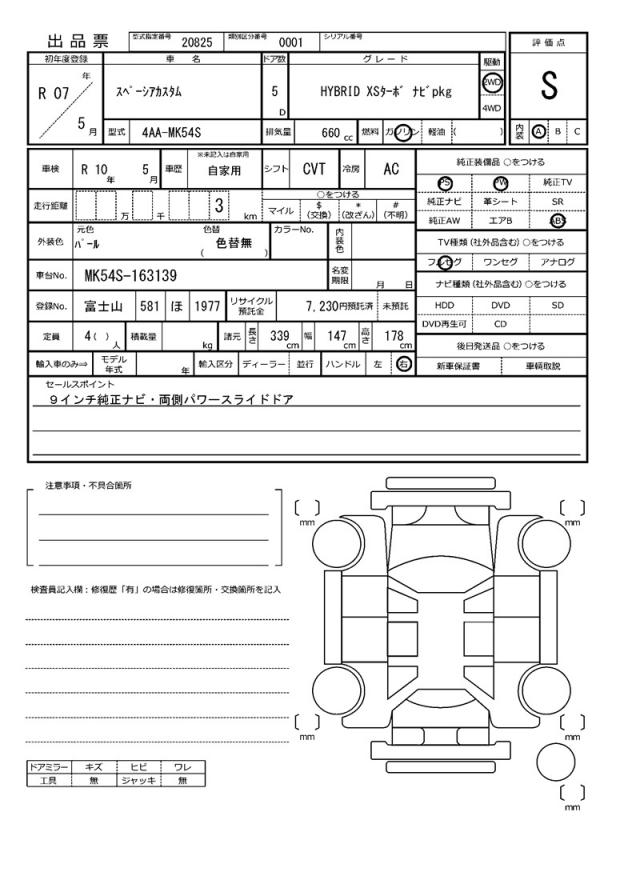 出品票 型式指定番号 20825 類別区分番号 0001 シリアル番号
初年度登録 車名 ドア数 グレード 駆動 評価点
R 07 年 5 月 スペーシアカスタム 5 D HYBRID XSターボ ナビpkg 2WD 4WD S
型式 4AA-MK54S 排気量 660 cc 燃料 ガソリン 軽油 ( ) 内装 A B C
車検 R 10 年 5 月 車歴 ※未記入は自家用 自家用 シフト CVT 冷房 AC 純正装備品 ○をつける
PS PW 純正TV
走行距離 万 千 3 km ○をつける
マイル $ (交換) * (改ざん) # (不明)
純正ナビ 革シート SR
純正AW エアB ABS
外装色 元色 パール 色替 色替無 ( ) カラーNo. 内装色
TV種類 (社外品含む) ○をつける
フルセグ ワンセグ アナログ
車台No. MK54S-163139 名変期限 月 日
ナビ種類 (社外品含む) ○をつける
登録No. 富士山 581 ほ 1977 リサイクル預託金 7,230円預託済 未預託
HDD DVD SD
DVD再生可 CD
定員 4 ( ) 人 積載量 kg 諸元 長さ 339 cm 幅 147 cm 高さ 178 cm
後日発送品 ○をつける
輸入車のみ⇒ モデル年式 年 輸入区分 ディーラー 並行 ハンドル 左 右
新車保証書 車輌取説
セールスポイント
9インチ純正ナビ・両側パワースライドドア
注意事項・不具合箇所
mm mm
検査員記入欄:修復歴「有」の場合は修復箇所・交換箇所を記入
mm mm
ドアミラー キズ ヒビ ワレ
工具 無 ジャッキ 無
mm